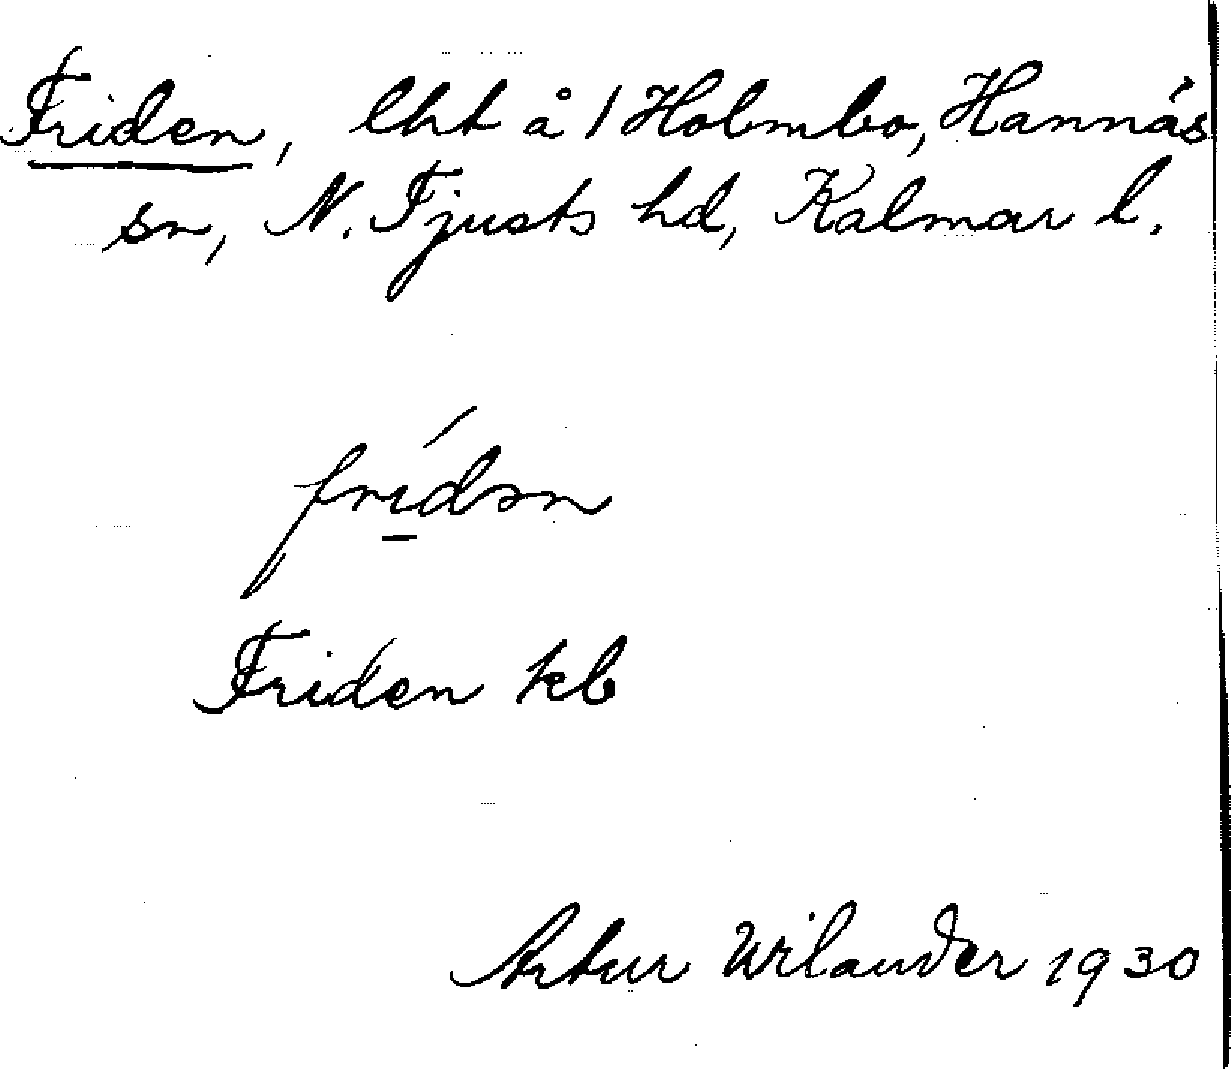 Friden, lht å 1 Holmbo, Hannäs
sn, N. Tjusts hd, Kalmar l.
frídən
Friden kb
Artur Wilander 1930